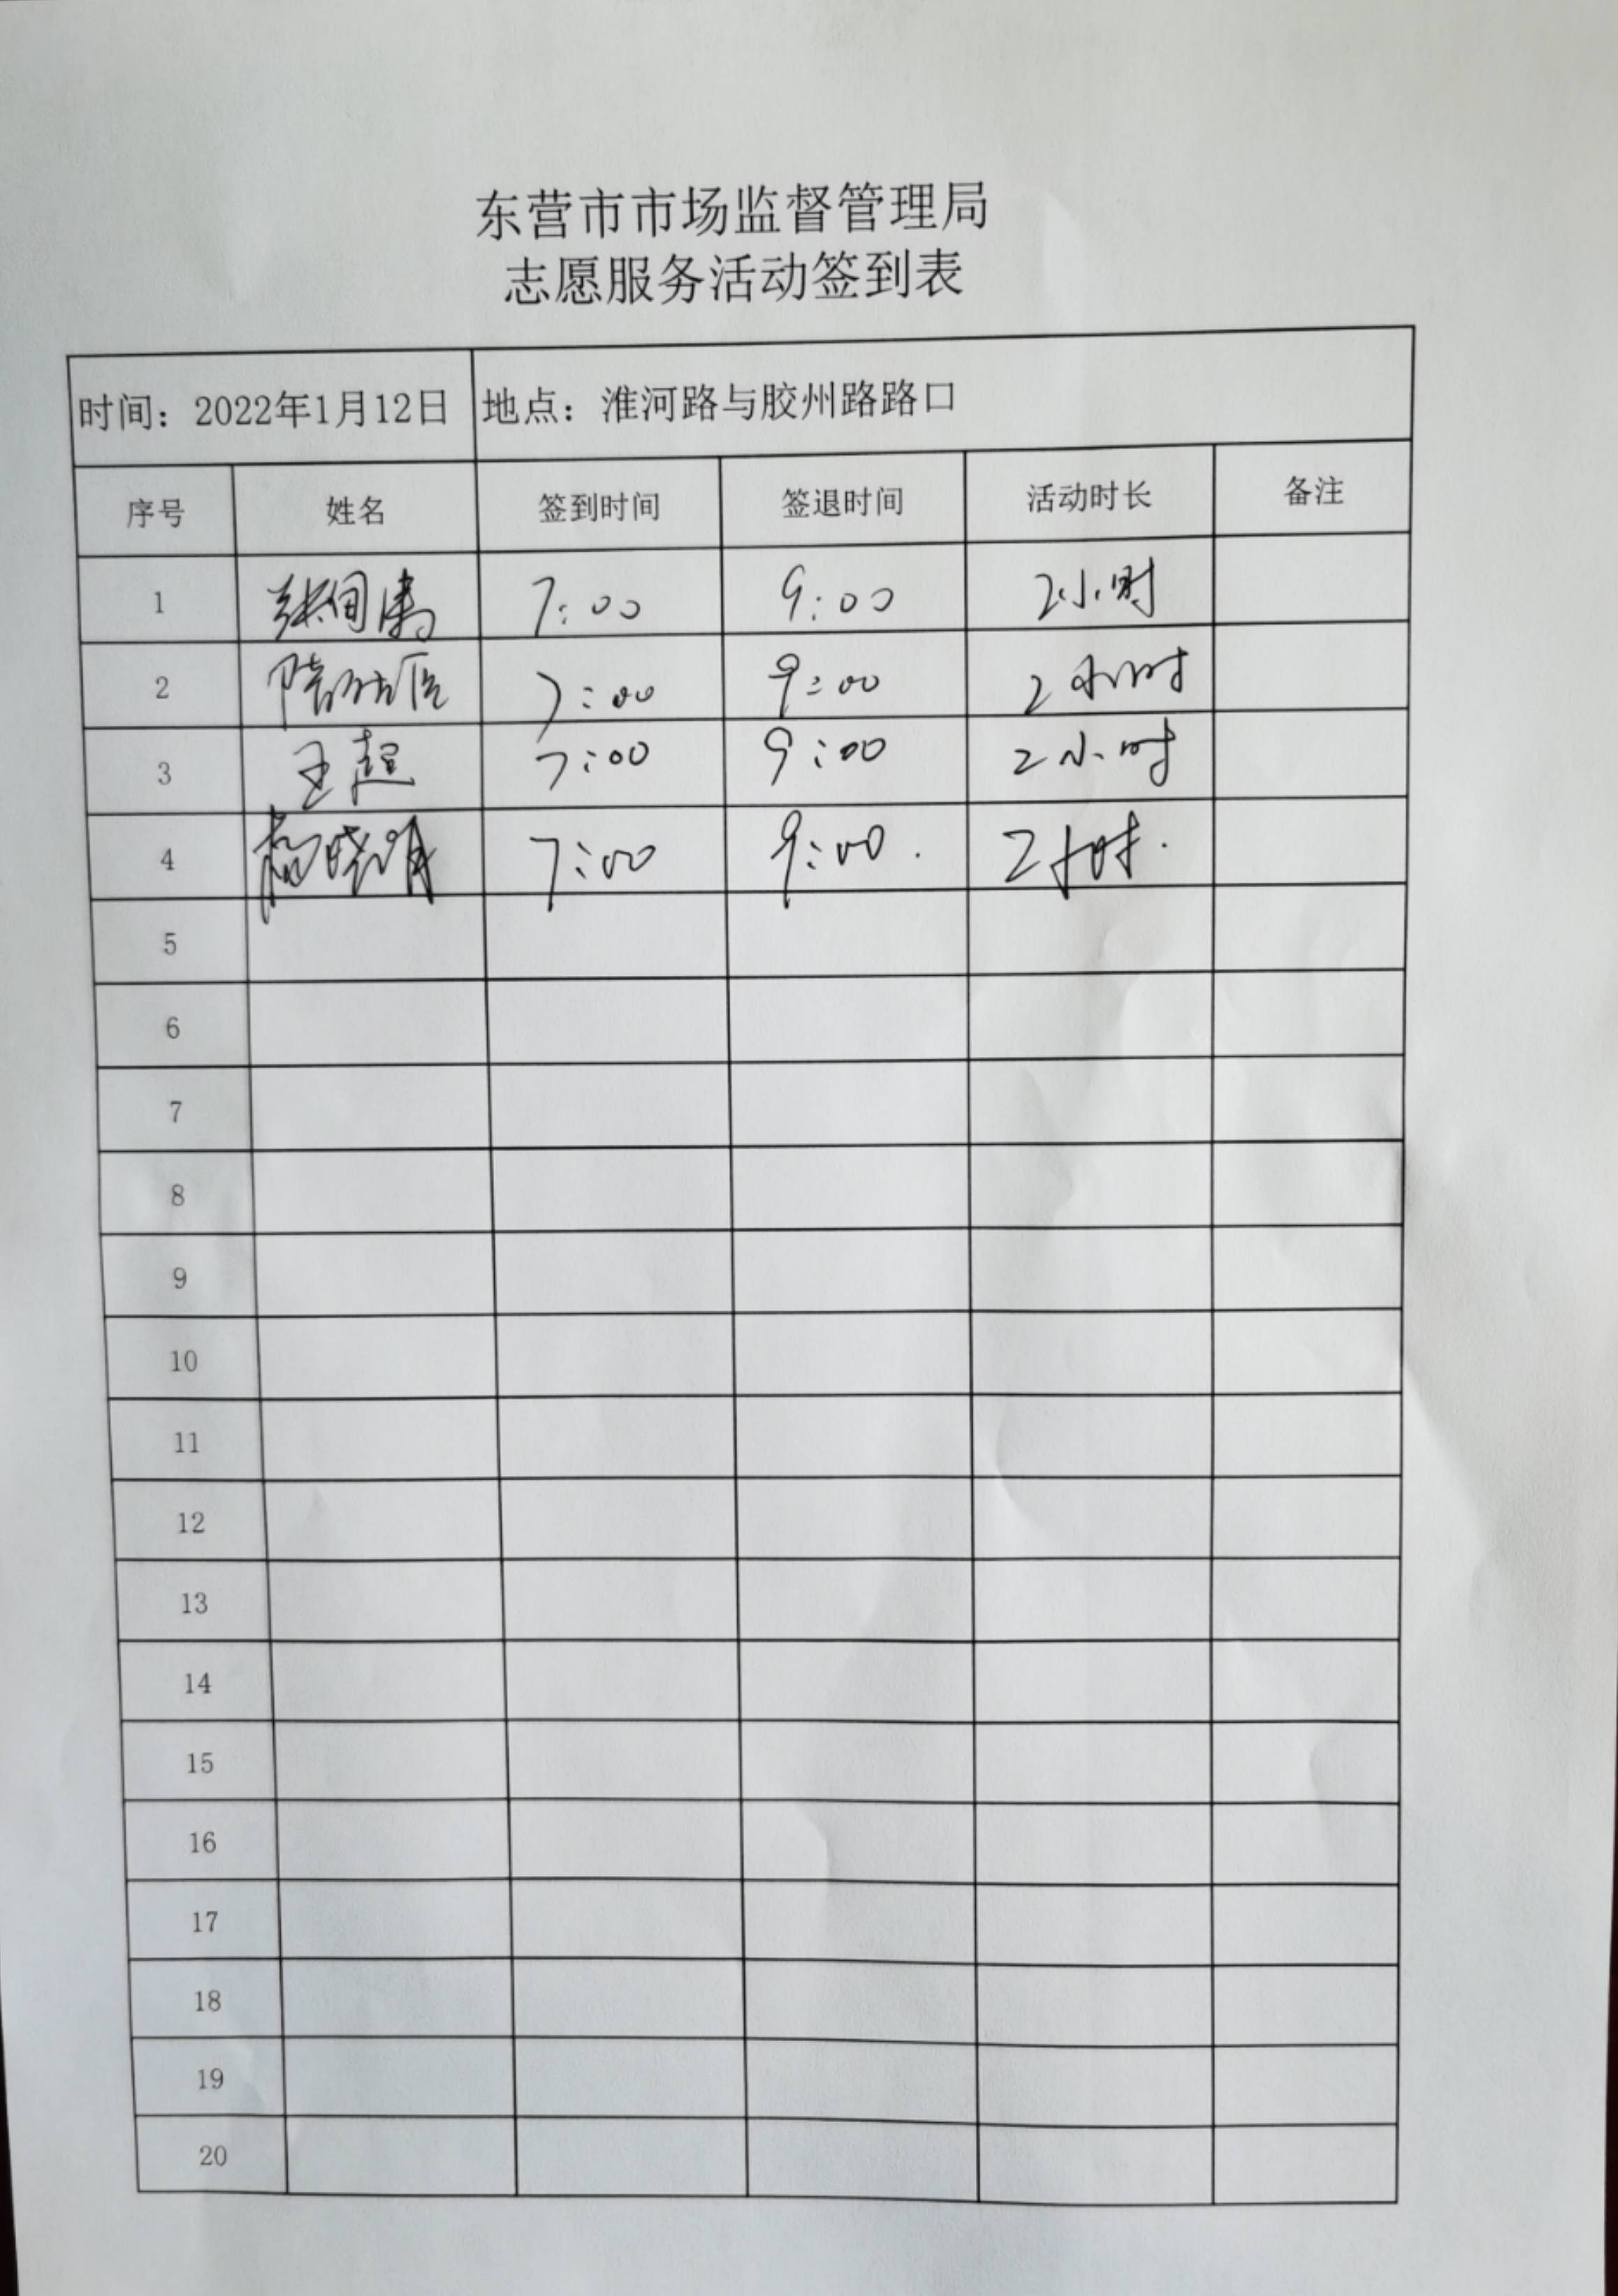 东营市市场监督管理局
志愿服务活动签到表
时间：2022年1月12日 地点：淮河路与胶州路路口
序号 姓名 签到时间 签退时间 活动时长 备注
1 7:00 9:00 2小时
2 7:00 9:00 2小时
3 王超 7:00 9:00 2小时
4 杨晓明 7:00 9:00. 2小时.
5
6
7
8
9
10
11
12
13
14
15
16
17
18
19
20